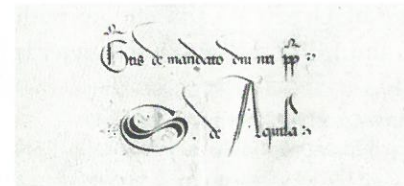 Gtis de mandato dni nri pp
S. de Aquila